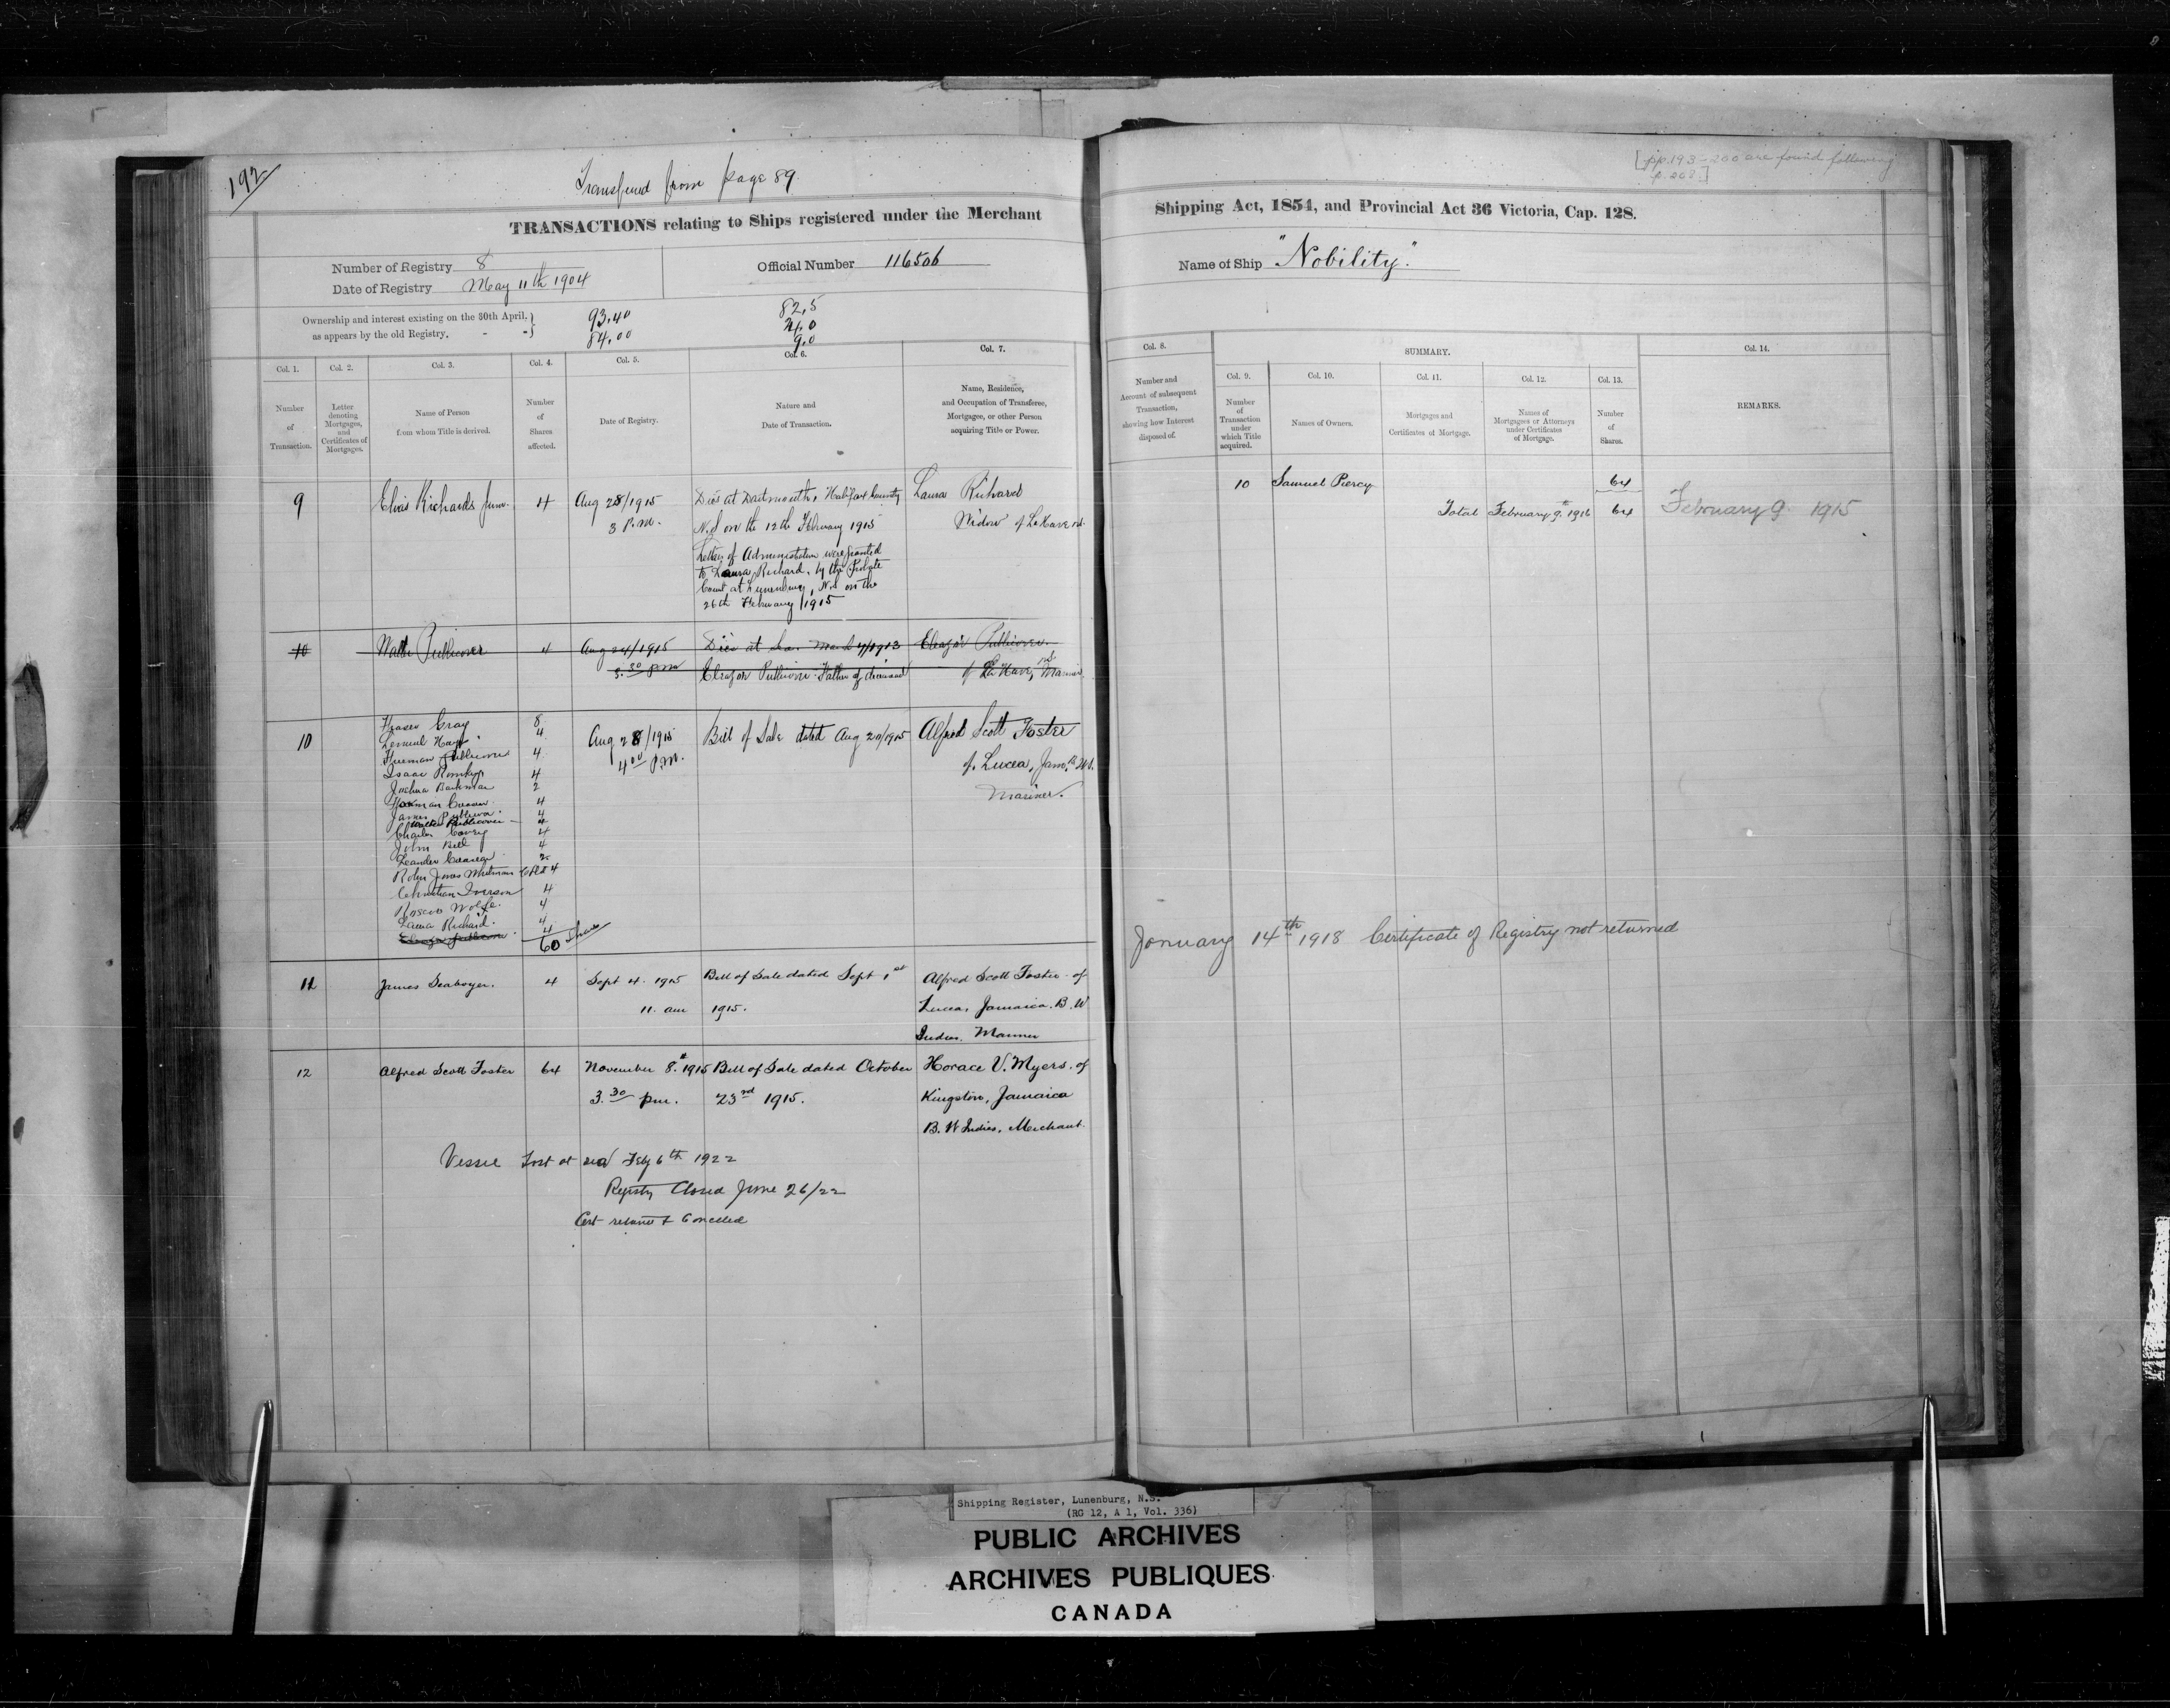 192
Transferred from page 89
[pp. 193-200 are found following
p. 208.]
TRANSACTIONS relating to Ships registered under the Merchant Shipping Act, 1854, and Provincial Act 36 Victoria, Cap. 128.
Number of Registry 8
Date of Registry May 11th 1904
Official Number 116506
Name of Ship "Nobility."
Ownership and interest existing on the 30th April,
as appears by the old Registry. - -
93.40
84.00
82,5
24,0
9,0
Col. 1.
Number
of
Transaction.
Col. 2.
Letter
denoting
Mortgages,
and
Certificates of
Mortgages.
Col. 3.
Name of Person
from whom Title is derived.
Col. 4.
Number
of
Shares
affected.
Col. 5.
Date of Registry.
Col. 6.
Nature and
Date of Transaction.
Col. 7.
Name, Residence,
and Occupation of Transferee,
Mortgagee, or other Person
acquiring Title or Power.
Col. 8.
Number and
Account of subsequent
Transaction,
showing how Interest
disposed of.
SUMMARY.
Col. 9.
Number
of
Transaction
under
which Title
acquired.
Col. 10.
Names of Owners.
Col. 11.
Mortgages and
Certificates of Mortgage.
Col. 12.
Names of
Mortgagees or Attorneys
under Certificates
of Mortgage.
Col. 13.
Number
of
Shares.
Col. 14.
REMARKS.
9
Elias Richards
4
Aug 28/1915
3 P.M.
Died at Dartmouth, Halifax County
N.S on the 12th February 1915
Letters of Administration were granted
to Laura Richard, by the Probate
Court at Lunenburg, N.S on the
26th February 1915
Laura Richard
Widow of LaHave N.S.
10
Publicover
4
Aug 24/1915
3.30 pm
Died at Sea March 4/1913
Eleazor Publicover Father of deceased
Eleazor Publicover.
of LaHave, N.S. Mariner
10
Fraser Gray 8
Lemuel 4
Freeman Publicover 4
Isaac Romkey 4
Joshua Bachman 2
Norman Creaser 4
James Publicover 4
Walter Publicover 4
Charles Covey 4
John Bell 4
Leander Creaser 2
Robin Jones Whitman Co Ltd 4
Christian Iverson 4
Roscoe Wolfe 4
Laura Richard 4
Eleazor Publicover 4
60 Shares
Aug 28/1915
4.00 P.M.
Bill of Sale dated Aug 20/1915
Alfred Scott Foster
of Lucea, Jam.
Mariner.
11
James Seaboyer.
4
Sept 4. 1915
11. am
Bill of Sale dated Sept 1st
1915.
Alfred Scott Foster of
Lucea, Jamaica. B. W
Indies. Mariner
12
Alfred Scott Foster
64
November 8th 1915
3.30 pm.
Bill of Sale dated October
23rd 1915.
Horace V. Myers. of
Kingston, Jamaica
B. W Indies, Merchant.
Vessel Lost at sea Feby 6th 1922
Registry Closed June 26/22
Cert returned & Cancelled
10 Samuel Piercy 64
Total February 9th 1916 64
February 9. 1915
January 14th 1918 Certificate of Registry not returned
Shipping Register, Lunenburg, N.S.
(RG 12, A 1, Vol. 336)
PUBLIC ARCHIVES
ARCHIVES PUBLIQUES
CANADA